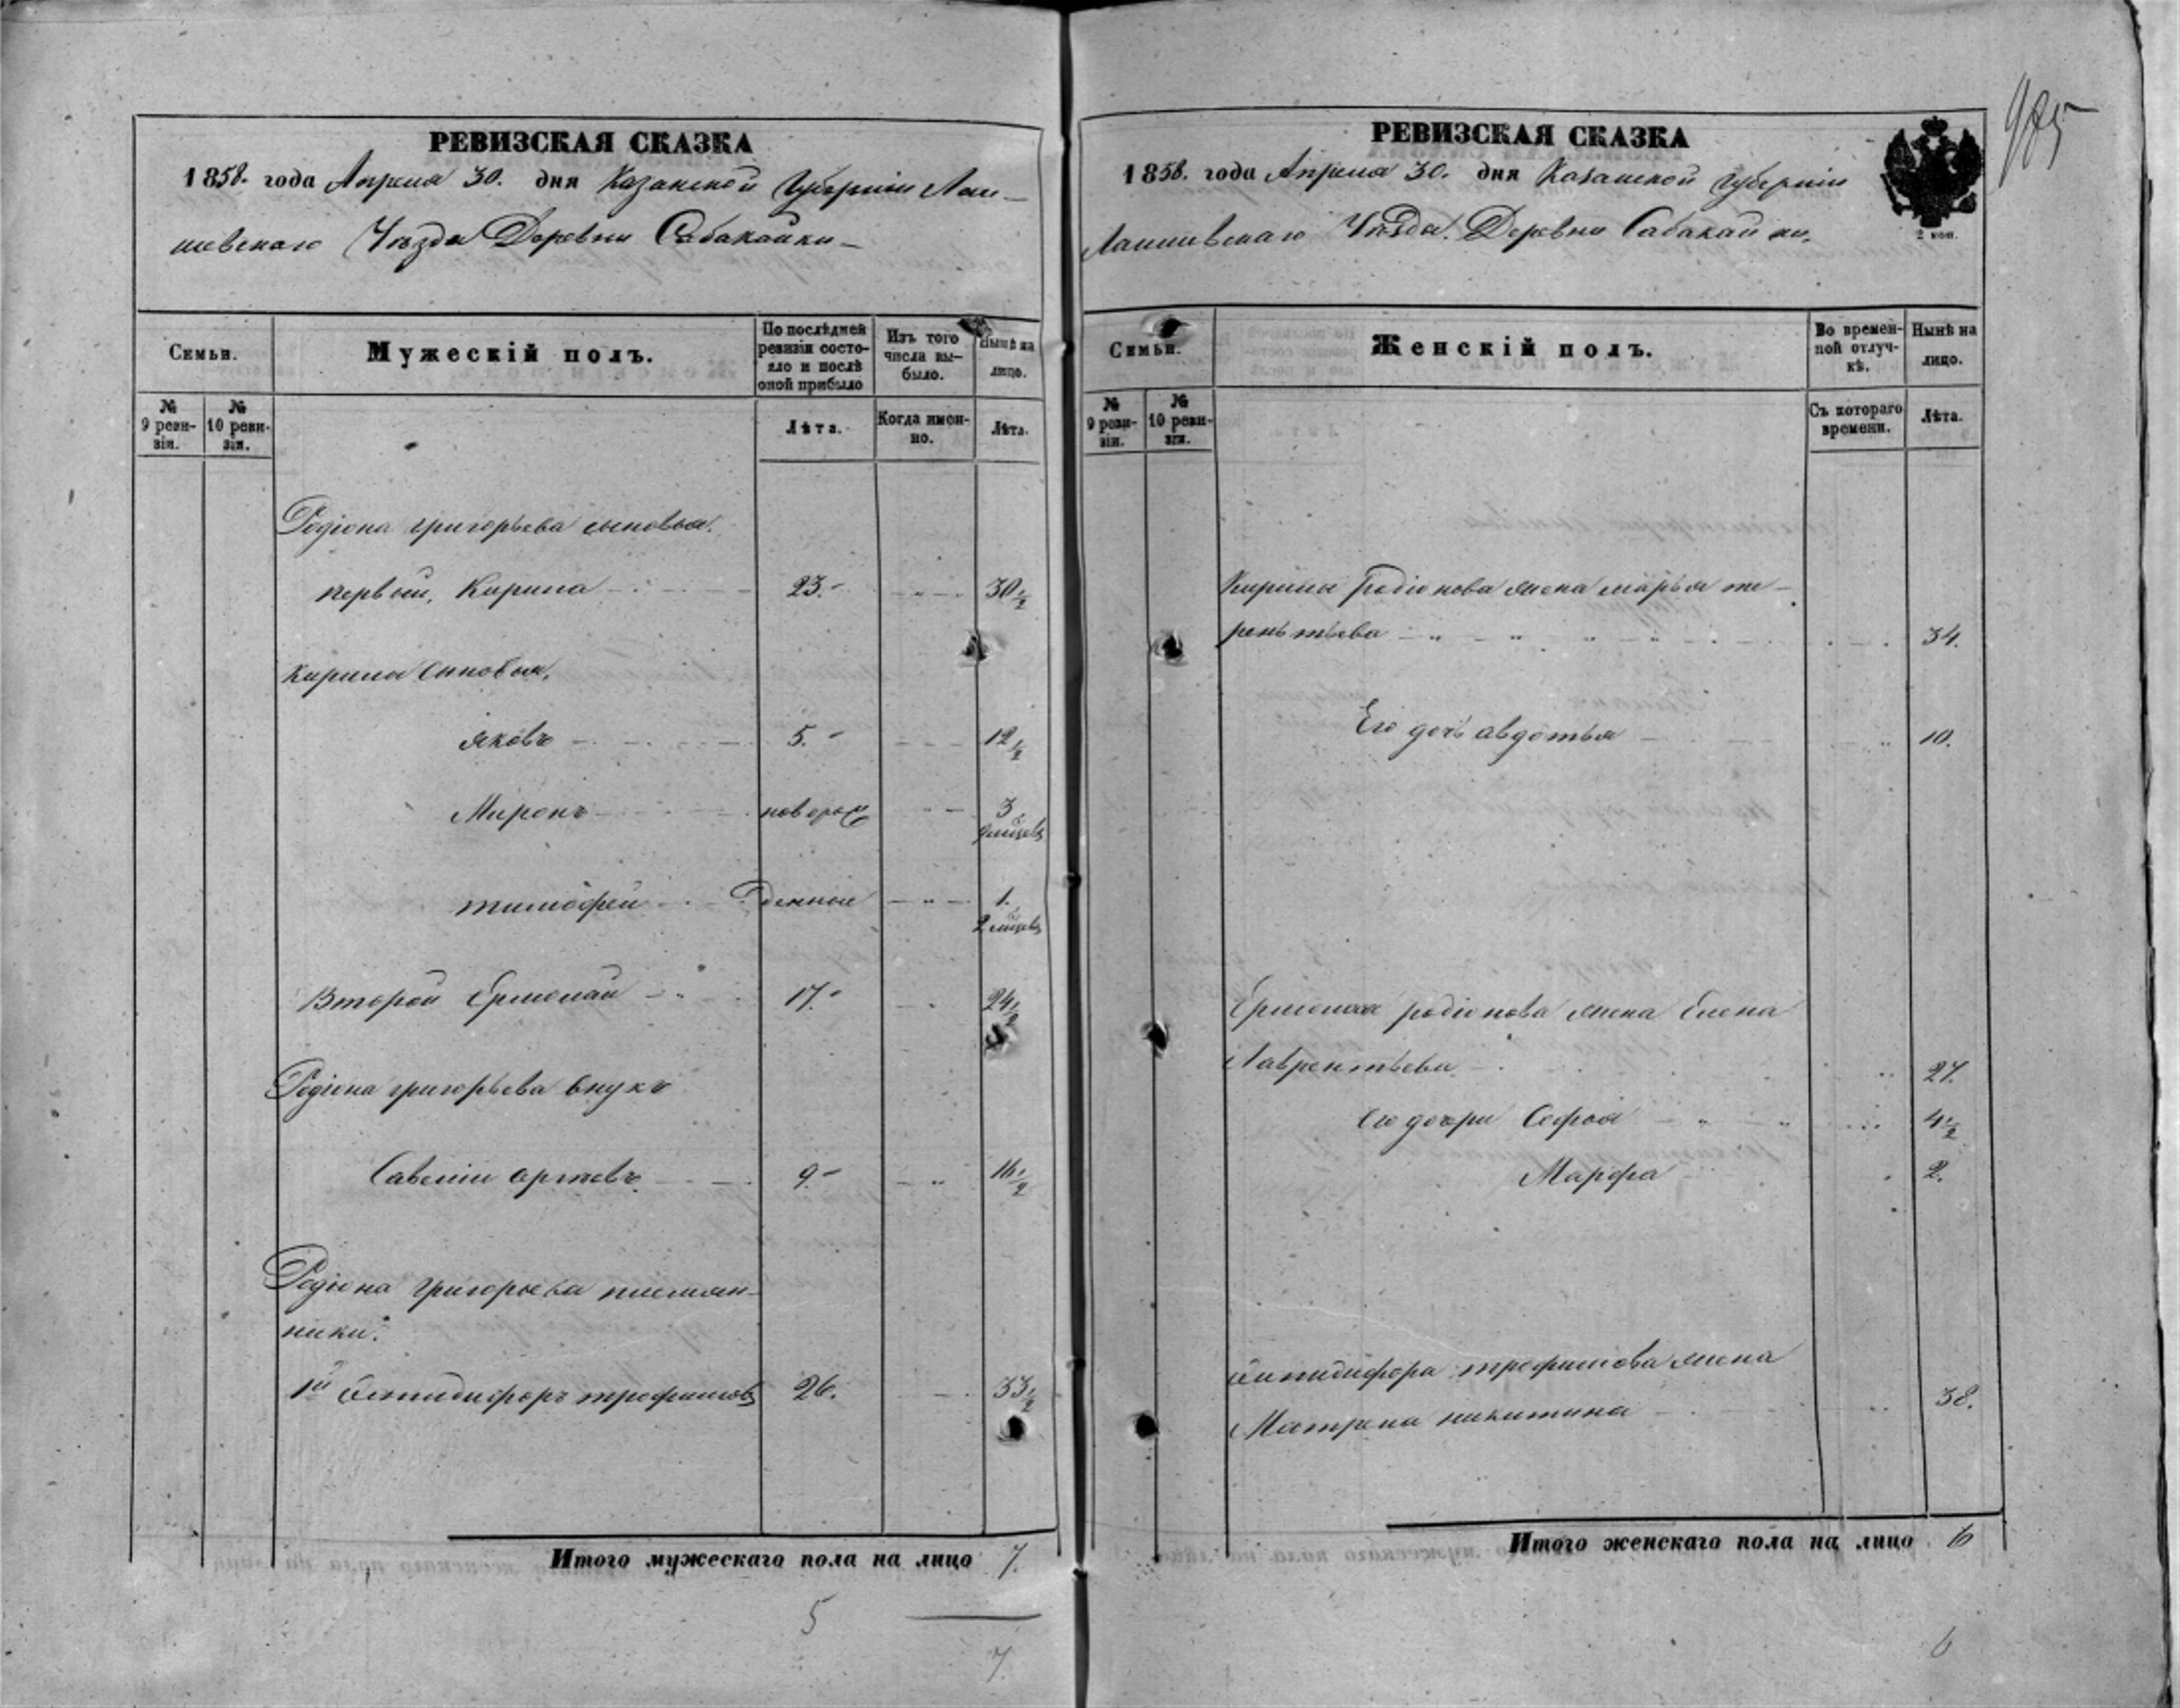 РЕВИЗСКАЯ СКАЗКА
1858. года Апреля 30. дня Казанской Губернiи Лаи-
шевскаго Уѣзда Деревни Сабакайки-
Семьи.
Мужескiй полъ.
По послѣдней ревизiи состо-
яло и послѣ оной прибыло
Изъ того числа вы-
было.
Нынѣ на лицо.
№ 9 реви-
зiи.
№ 10 реви-
зiи.
Лѣта.
Когда имен-
но.
Лѣта.
Родiона григорьева сыновья.
первый, Кирила 23. 30 1/2
Кирила сыновья,
яковъ 5. 12 1/2
Миронъ новорож 3
9 мѣсяцевъ
тимофей денные 1.
2 мѣсяцевъ
Второй Ермолай 17. 24 1/2
Родiона григорьева внукъ
Савелiй 9. 16 1/2
Родiона григорьева племян-
ники.
1й трофимовъ 26. 33 1/2
Итого мужескаго пола на лицо 7.
5
7.
РЕВИЗСКАЯ СКАЗКА
1858. года Апреля 30. дня Казанской Губернiи
Лаишевскаго Уѣзда. Деревни Сабакайки.
2 коп.
Семьи.
Женскiй полъ.
Во времен-
ной отлуч-
кѣ.
Нынѣ на лицо.
№ 9 реви-
зiи.
№ 10 реви-
зiи.
Съ котораго времени.
Лѣта.
Кирилы Родiонова жена марья те-
реньтьева 34.
Его дочь авдотья 10.
Ермолая родiонова жена Елена
Лаврентьева 27.
Его дочри Софья 4 1/2
Марфа 2.
трофимова жена
Матрена никитина 38.
Итого женскаго пола на лицо 6
6